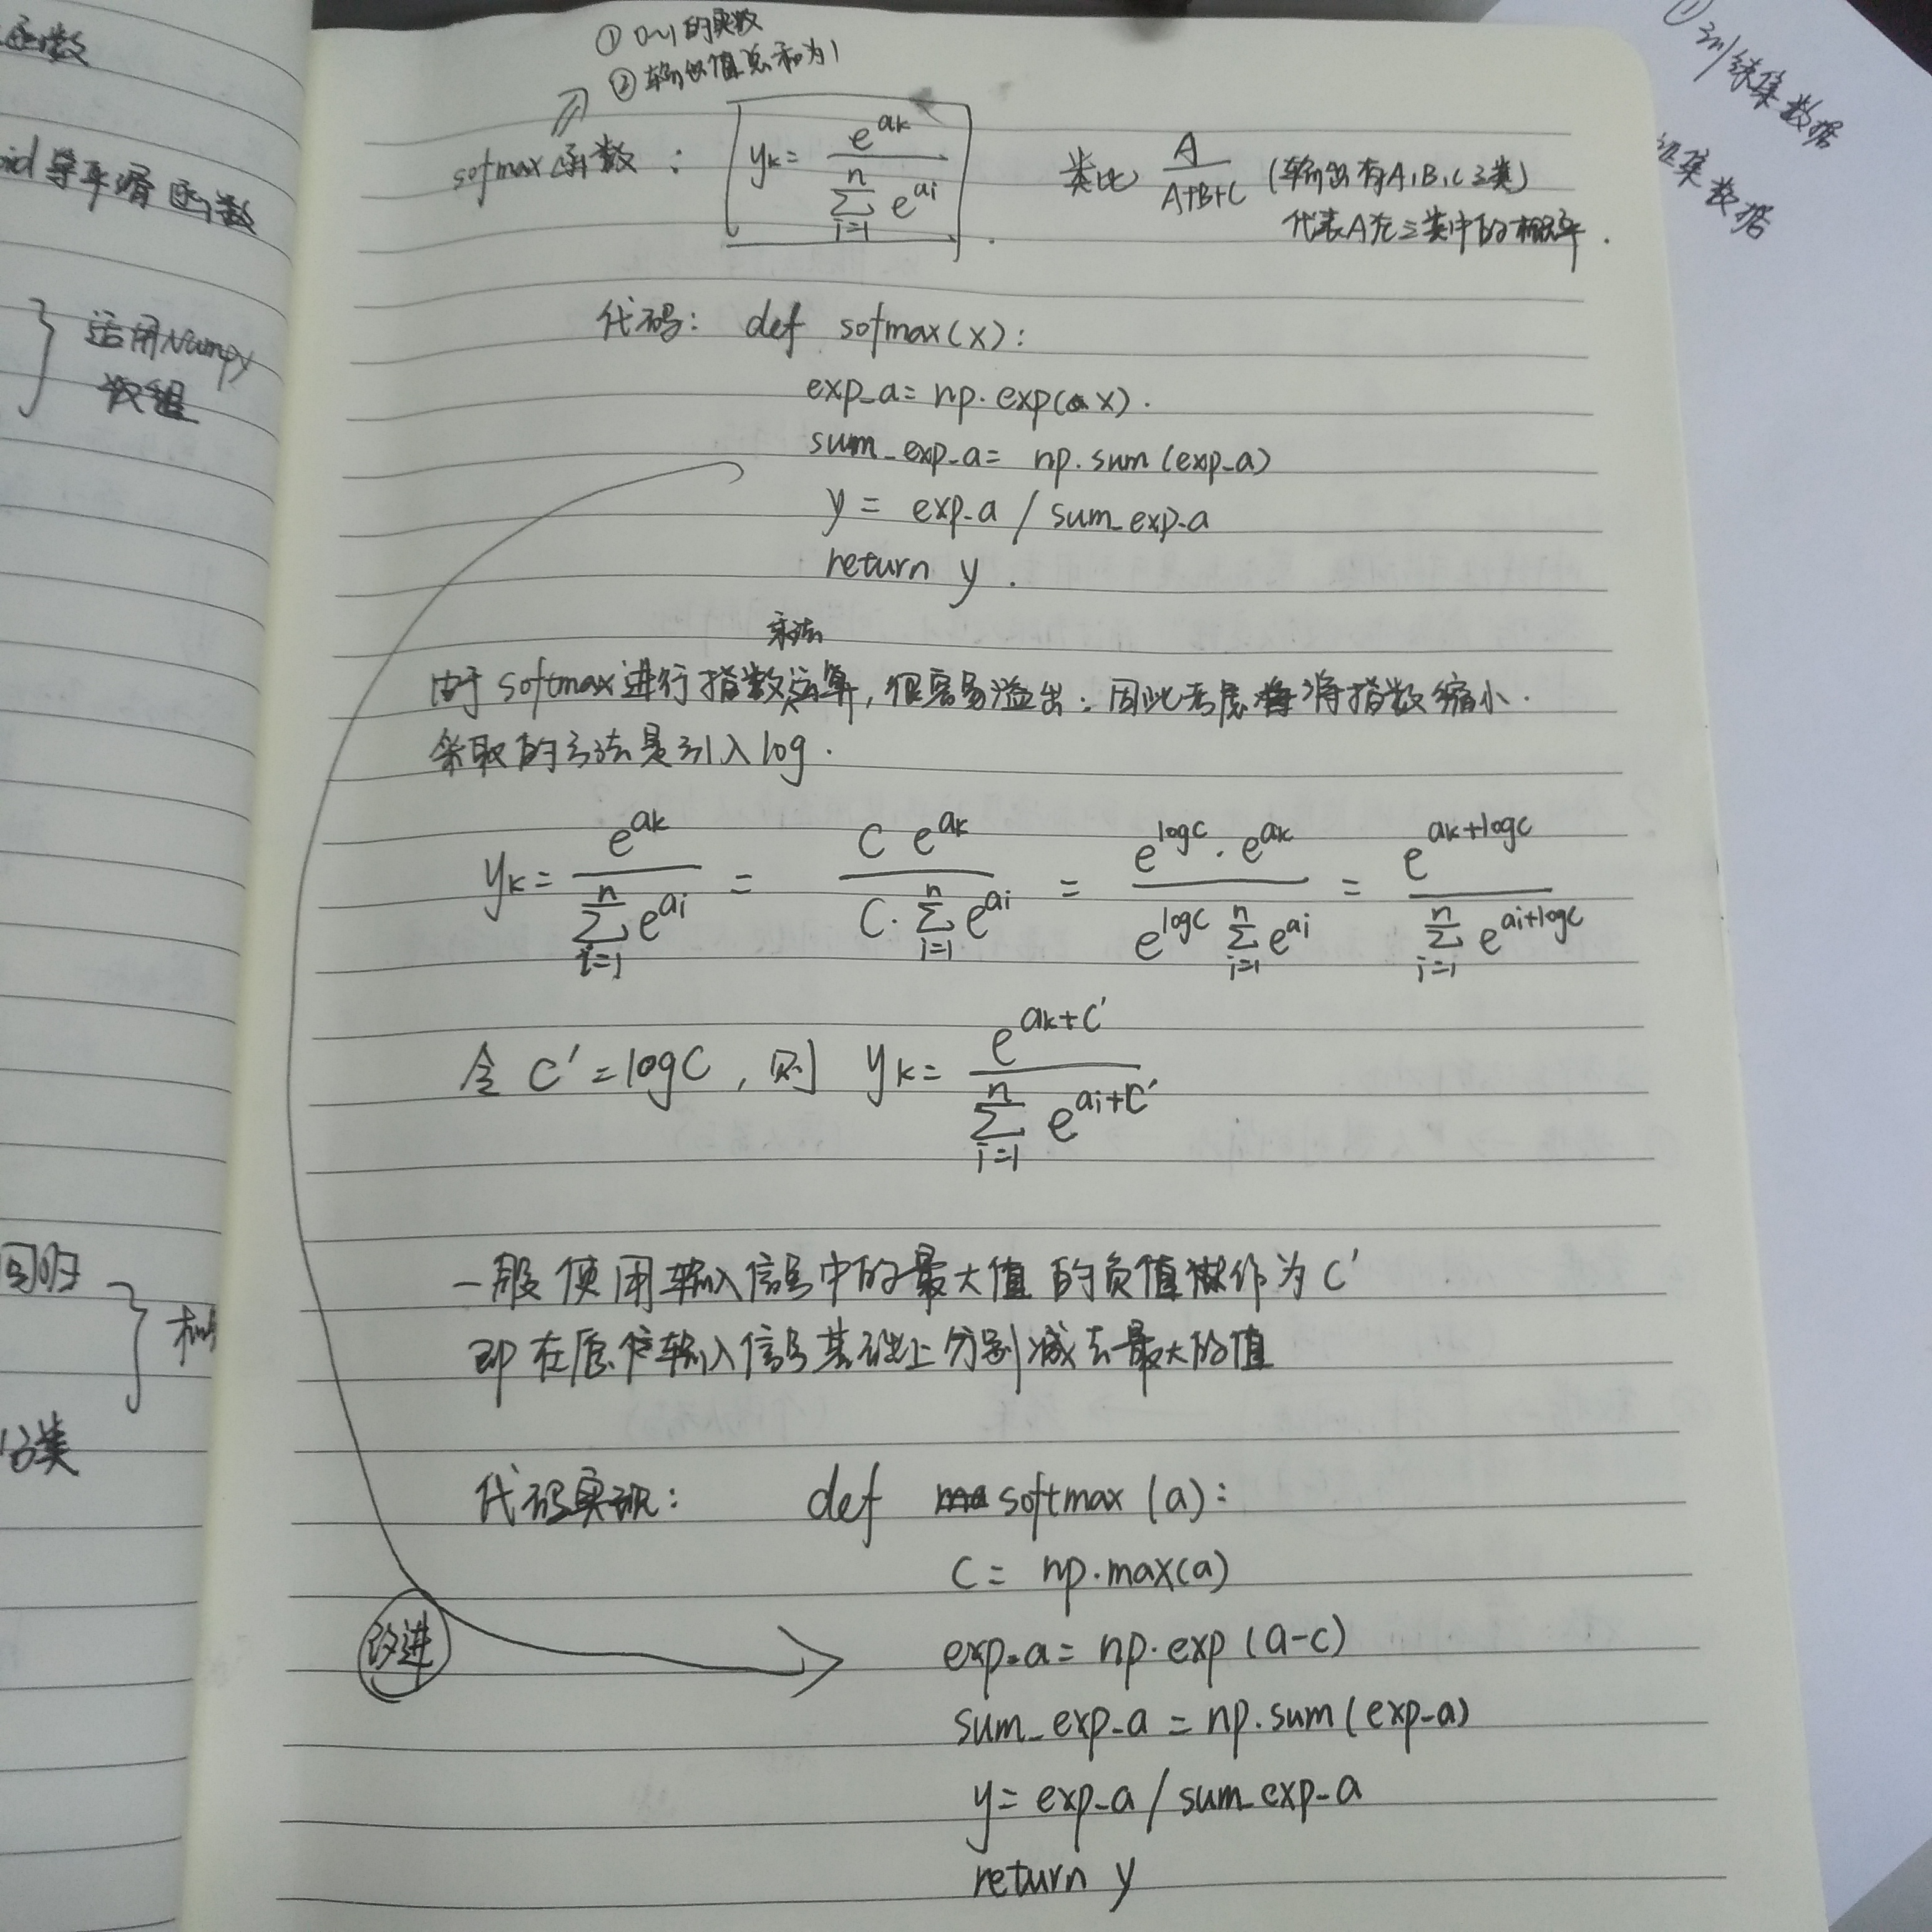 函数
oid等平滑函数
适用Numpy
数组
回归
分类
① 0~1的实数
② 输出值总和为1
sofmax函数: yk= e^ak / Σ(i=1→n) e^ai 类比 A/(A+B+C) (输出有A,B,C三类)
代表A在三类中的概率.
代码: def sofmax(x):
exp_a= np.exp(x).
sum_exp_a= np.sum(exp_a)
y = exp_a / sum_exp_a
return y.
乘法
由于softmax进行指数运算,很容易溢出;因此考虑将指数缩小.
采取的方法是引入log.
yk= e^ak / Σ(i=1→n) e^ai = C e^ak / C·Σ(i=1→n) e^ai = e^logC · e^ak / e^logC Σ(i=1→n) e^ai = e^(ak+logC) / Σ(i=1→n) e^(ai+logC)
令 C'=logC, 则 yk= e^(ak+C') / Σ(i=1→n) e^(ai+C')
一般使用输入信号中的最大值的负值作为C'
即在原输入信号基础上分别减去最大的值
代码实现: def softmax(a):
C= np.max(a)
改进
exp_a= np.exp(a-c)
sum_exp_a = np.sum(exp_a)
y= exp_a / sum_exp_a
return y
① 训练集数据
证集数据